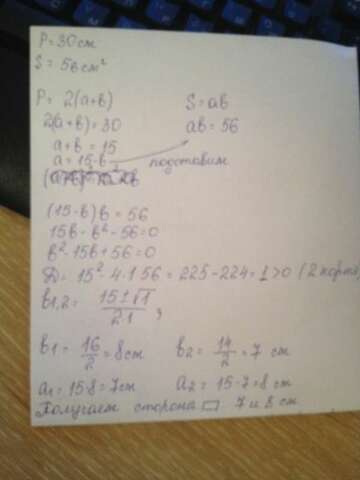 P = 30 см
S = 56 см²
P = 2(a+b) S = ab
2(a+b) = 30 ab = 56
a+b = 15
a = 15-b подставим
(15-b)b = 56
15b - b² - 56 = 0
b² - 15b + 56 = 0
D = 15² - 4·1·56 = 225 - 224 = 1 > 0 (2 корня)
b1,2 = (15 ± √1)/(2·1) ;
b1 - 16/2 = 8 см b2 = 14/2 = 7 см
a1 = 15-8 = 7 см a2 = 15-7 = 8 см
Получаем сторона ▭ 7 и 8 см